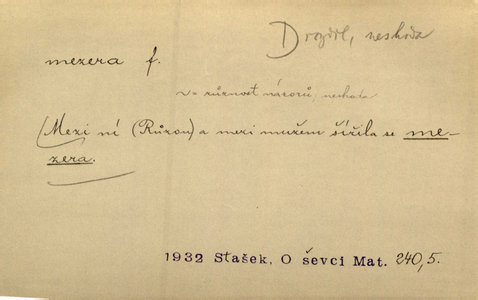 neshoda
mezera f.
= různost názorů, neshoda
(Mezi ní (Růzou) a mezi mužem šířila se me-
zera.
1932 Stašek, O ševci Mat. 240,5.